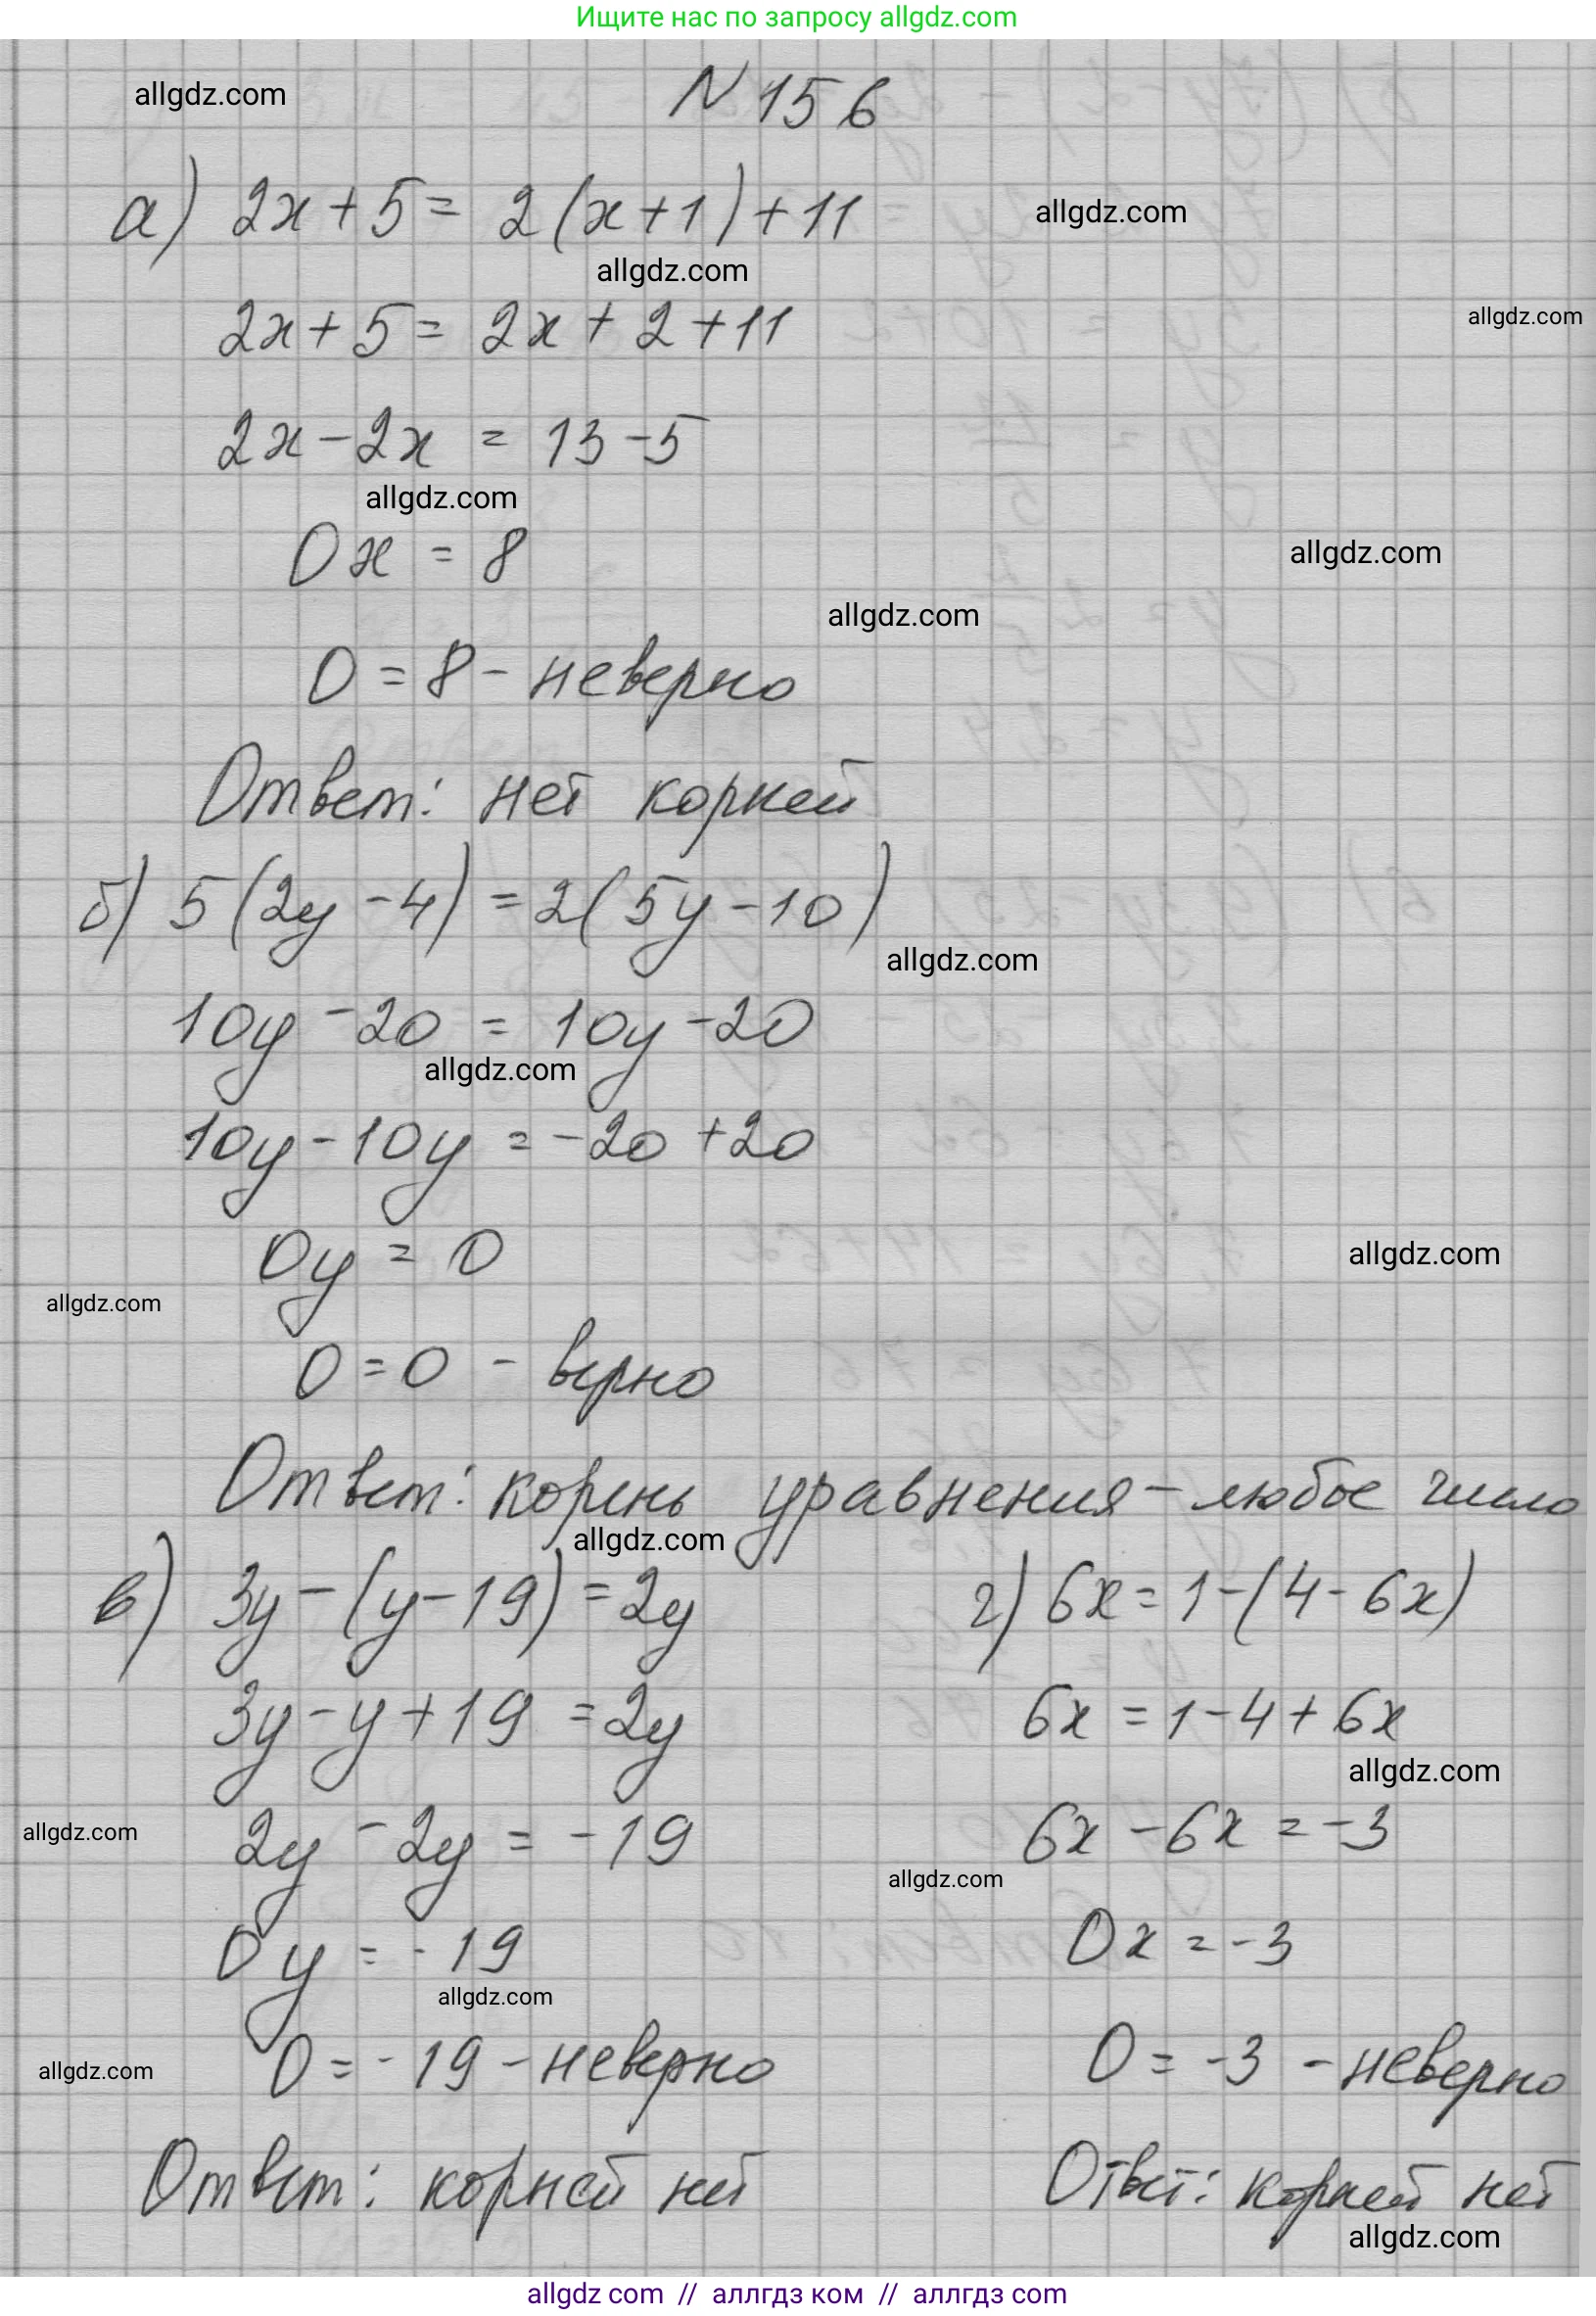 Ищите нас по запросу allgdz.com
allgdz.com
N 156
а) 2x + 5 = 2(x+1)+11
allgdz.com
allgdz.com
2x + 5 = 2x + 2 + 11
allgdz.com
2x - 2x = 13 - 5
allgdz.com
0x = 8
allgdz.com
allgdz.com
0 = 8 - неверно
Ответ: нет корней
б) 5(2y - 4) = 2(5y - 10)
allgdz.com
10y - 20 = 10y - 20
allgdz.com
10y - 10y = -20 + 20
0y = 0
allgdz.com
allgdz.com
0 = 0 - верно
Ответ: корень уравнения - любое число
allgdz.com
в) 3y - (y - 19) = 2y
3y - y + 19 = 2y
allgdz.com
2y - 2y = -19
0y = -19
allgdz.com
0 = -19 - неверно
allgdz.com
Ответ: корней нет
г) 6x = 1 - (4 - 6x)
6x = 1 - 4 + 6x
allgdz.com
6x - 6x = -3
allgdz.com
0x = -3
0 = -3 - неверно
Ответ: корней нет
allgdz.com
allgdz com // аллгдз ком // аллгдз com